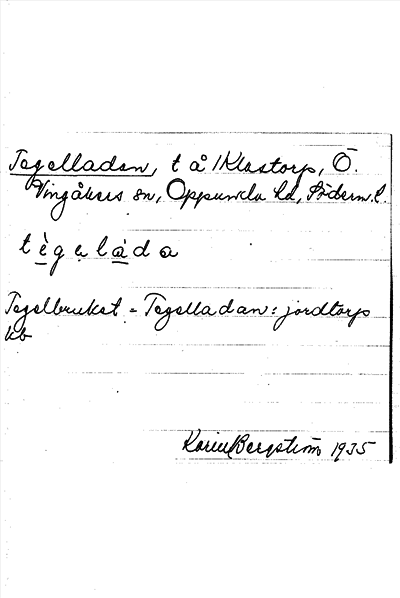 Tegelladan, t å 1 Klastorp, Ö.
Vingåkers sn, Oppunda hd, Söderm. l.
tè̠gəlà̠da
Tegelbruket = Tegelladan: jordtorp
kb
Karin Bergström 1935